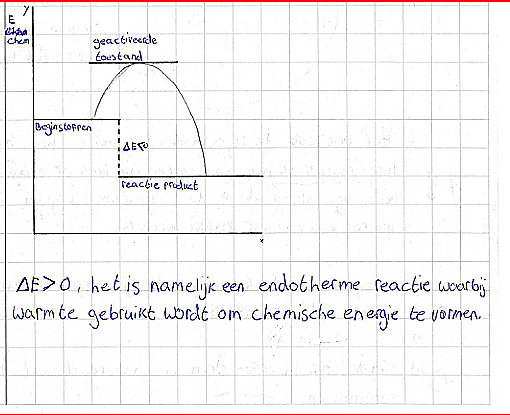 y
E
chem
geactiveerde
toestand
Beginstoffen
ΔE<0
reactie product
x
ΔE>0, het is namelijk een endotherme reactie waarbij
warmte gebruikt wordt om chemische energie te vormen.